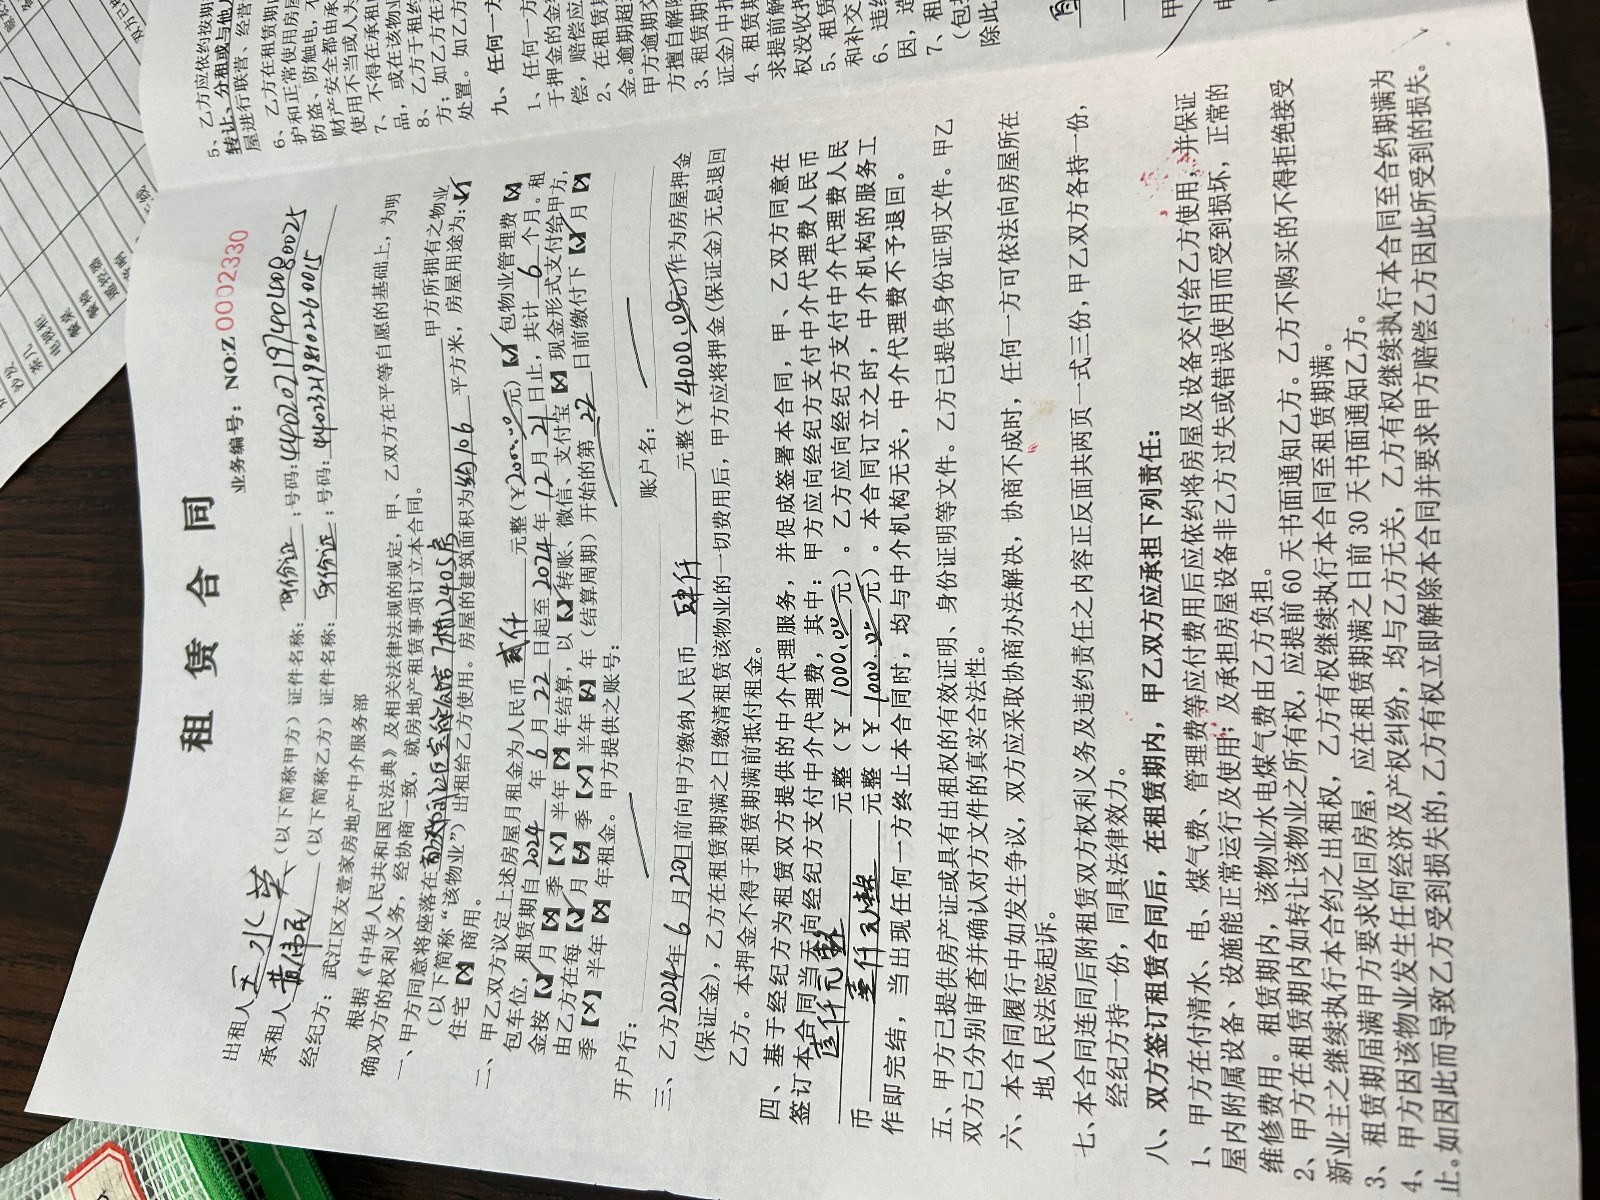 租赁合同
业务编号：NO:Z 0002330
出租人 水英（以下简称甲方）证件名称：身份证；号码：
承租人黄伟民（以下简称乙方）证件名称：身份证；号码：
经纪方：武江区友壹家房地产中介服务部
根据《中华人民共和国民法典》及相关法律法规的规定，甲、乙双方在平等自愿的基础上，为明
确双方的权利义务，经协商一致，就房地产租赁事项订立本合同。
一、甲方同意将座落在 2405房 甲方所拥有之物业
（以下简称“该物业”）出租给乙方使用。房屋的建筑面积为约106平方米，房屋用途为：【✓】
住宅【×】商用。
二、甲乙双方议定上述房屋月租金为人民币 贰仟 元整（¥2000.00元）【✓】包物业管理费【×】
包车位，租赁期自2024年6月22日起至2024年12月21日止，共计6个月。租
金按【✓】月【×】季【×】半年【×】年结算，以【✓】转账、微信、支付宝【×】现金形式支付给甲方，
由乙方在每【✓】月【×】季【×】半年【×】年（结算周期）开始的第22日前缴付下【✓】月【×】
季【×】半年【×】年租金。甲方提供之账号：
开户行： 账户名：
三、乙方2024年6月20日前向甲方缴纳人民币 肆仟 元整（¥4000.00元）作为房屋押金
（保证金），乙方在租赁期满之日缴清租赁该物业的一切费用后，甲方应将押金（保证金）无息退回
乙方。本押金不得于租赁期满前抵付租金。
四、基于经纪方为租赁双方提供的中介代理服务，并促成签署本合同，甲、乙双方同意在
签订本合同当天向经纪方支付中介代理费，其中：甲方应向经纪方支付中介代理费人民币
壹仟元整 元整（¥1000.00元）。乙方应向经纪方支付中介代理费人民
币 壹仟元整 元整（¥1000.00元）。本合同订立之时，中介机构的服务工
作即完结，当出现任何一方终止本合同时，均与中介机构无关，中介代理费不予退回。
五、甲方已提供房产证或具有出租权的有效证明、身份证明等文件。乙方已提供身份证明文件。甲乙
双方已分别审查并确认对方文件的真实合法性。
六、本合同履行中如发生争议，双方应采取协商办法解决，协商不成时，任何一方可依法向房屋所在
地人民法院起诉。
七、本合同连同后附租赁双方权利义务及违约责任之内容正反面共两页一式三份，甲乙双方各持一份，
经纪方持一份，同具法律效力。
八、双方签订租赁合同后，在租赁期内，甲乙双方应承担下列责任：
1、甲方在付清水、电、煤气费、管理费等应付费用后应依约将房屋及设备交付给乙方使用，并保证
屋内附属设备、设施能正常运行及使用；及承担房屋设备非乙方过失或错误使用而受到损坏，正常的
维修费用。租赁期内，该物业水电煤气费由乙方负担。
2、甲方在租赁期内如转让该物业之所有权，应提前60天书面通知乙方。乙方不购买的不得拒绝接受
新业主之继续执行本合约之出租权，乙方有权继续执行本合同至租赁期满。
3、租赁期届满甲方要求收回房屋，应在租赁期满之日前30天书面通知乙方。
4、甲方因该物业发生任何经济及产权纠纷，均与乙方无关，乙方有权继续执行本合同至合约期满为
止。如因此而导致乙方受到损失的，乙方有权立即解除本合同并要求甲方赔偿乙方因此所受到的损失。
5、乙方应依约按期
转让、分租或与他人
屋进行联营、经营
6、乙方在租赁期
护和正常使用房屋
防盗、防触电，不
财产安全都由承
使用不当或人为
7、不得在承租
品，或在该物业
8、乙方于租约
方；如乙方在
处置。如乙方
九、任何一方
1、任何一方
于押金的金
偿，赔偿应
2、在租赁
金。逾期超
甲方逾期交
方擅自解除
3、租赁期
证金）中
4、租赁期
求提前解
权没收
5、租赁
和补交
6、违约
因，造
7、租
（包
除此
甲